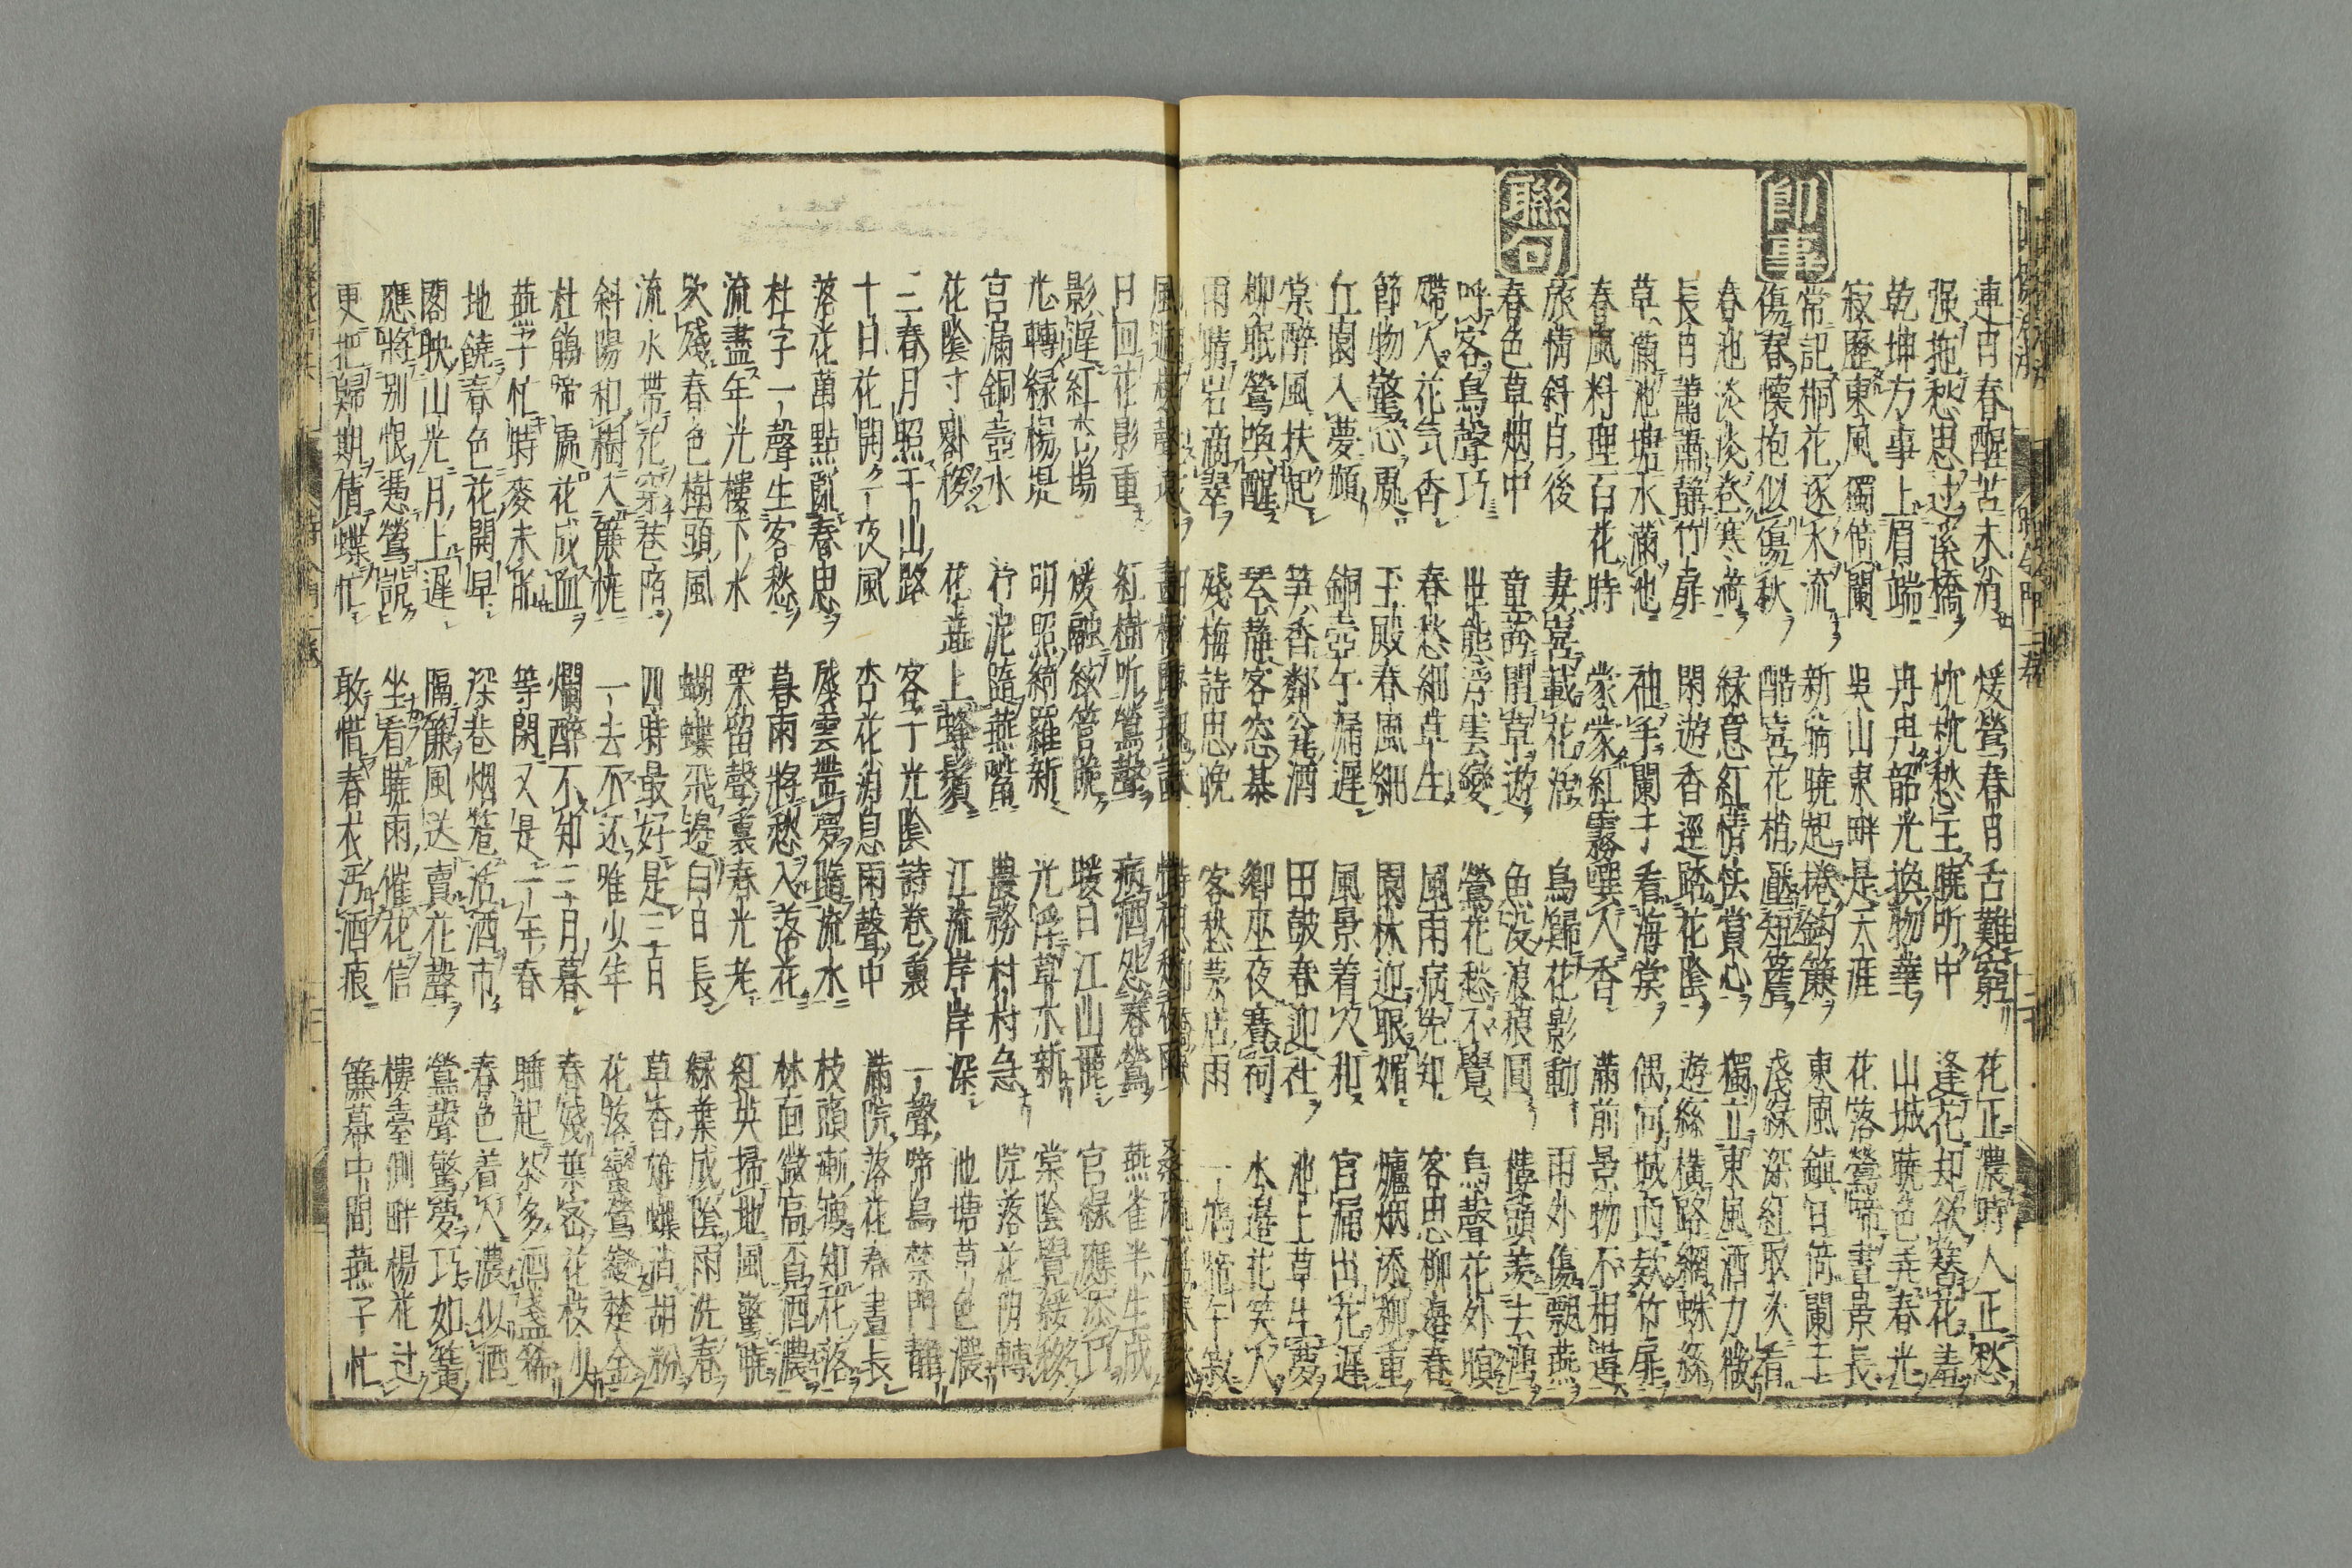 聯句
即事
連日春酲苦未消 煖鶯春日舌難窮 花正濃時人正愁
強拖愁思过溪橋 枕枕愁王曉听中 逢花却欲替花羞
乾坤方事上眉端 冉冉韶光換物華 山城曉色弄春光
寂歷東風獨倚闌 吳山東畔是天涯 花落鶯啼晝景長
常記桐花逐水流 新晴曉起捲鈎簾 東風鎮日倚闌干
傷春懷抱似傷秋 酷害花梢壓短簷 淺綠深紅取次看
春池淡淡卷寒漪 綠意紅情怯賞心 獨立東風酒力微
長日蕭蕭靜竹扉 閑遊香逕踏花陰 遊絲橫路網蛛絲
草滿池塘水滿池 袖手闌干看海棠 偶向城西欵竹扉
春風料理百花時 蒙蒙紅霧噀人香 滿前景物不相違
旅情斜日後 妻嵩載花活 鳥歸花影動 雨外傷飄燕
春色草烟中 童誇鬪草遊 魚沒浪痕圓 樓頭羨去鴻
呼客鳥聲巧 世態浮雲變 鶯花愁不覺 鳥聲花外暝
帶人花気香 春愁細草生 風雨病先知 客思柳邊春
節物驚心處 玉殿春風細 園林迎眼媚 爐烟添柳重
丘園入夢頻 銅壺午漏遲 風景着人和 宮漏出花遲
棠醉風扶起 笋香鄰瓮酒 田皷春迎社 池上草生夢
柳眠鶯喚醒 琴靜客窓棊 卿巫夜賽祠 水邊花笑人
雨晴岩滴翠 殘梅詩思晩 客愁茅店雨 一鳩啼午寂
日回花影重 紅樹听鶯聲 病酒怨春鶯 燕雀半生成
影遲紅杏塢 煖融絃管脆 暖日江山麗 官綠應添巧
光轉綠楊堤 明照綺羅新 光浮草木新 棠陰覺緩移
宮漏銅壺水 泞泥隨燕嘴 農務村村急 院落花阴轉
花陰寸晷移 花蕋上蜂鬚 江流岸岸深 池塘草色濃
二春月照千山路 客子光陰詩卷裏 一聲啼鳥禁門靜
十日花開一夜風 杏花消息雨聲中 滿院落花春晝長
落花萬點亂春思 殘雲帶夢隨流水 枝頭漸瘦知花落
杜宇一聲生客愁 暮雨將愁入落花 林面微高看酒濃
流盡年光樓下水 栗留聲裏春光老 紅英掃地風驚曉
欺殘春色樹頭風 蝴蝶飛邊白日長 綠葉成陰雨洗春
流水帶花穿巷陌 四時最好是三月 草香雄蝶消胡粉
斜陽和樹入簾櫳 一去不还唯少年 花落蠻鶯變楚金
杜鵑啼處花成血 爛醉不知三月暮 春殘葉密花枝少
燕子忙時麥未胎 等閑又是一年春 睡起茶多酒盞稀
地饒春色花開早 深巷烟篭活酒市 春色着人濃似酒
閣映山光月上遲 隔簾風送賣花聲 鶯聲驚夢巧如簧
應將別恨憑鶯說 坐看曉雨催花信 樓臺側畔楊花过
更把歸期倩蝶忙 敢惜春衣汚酒痕 簾幕中間燕子忙